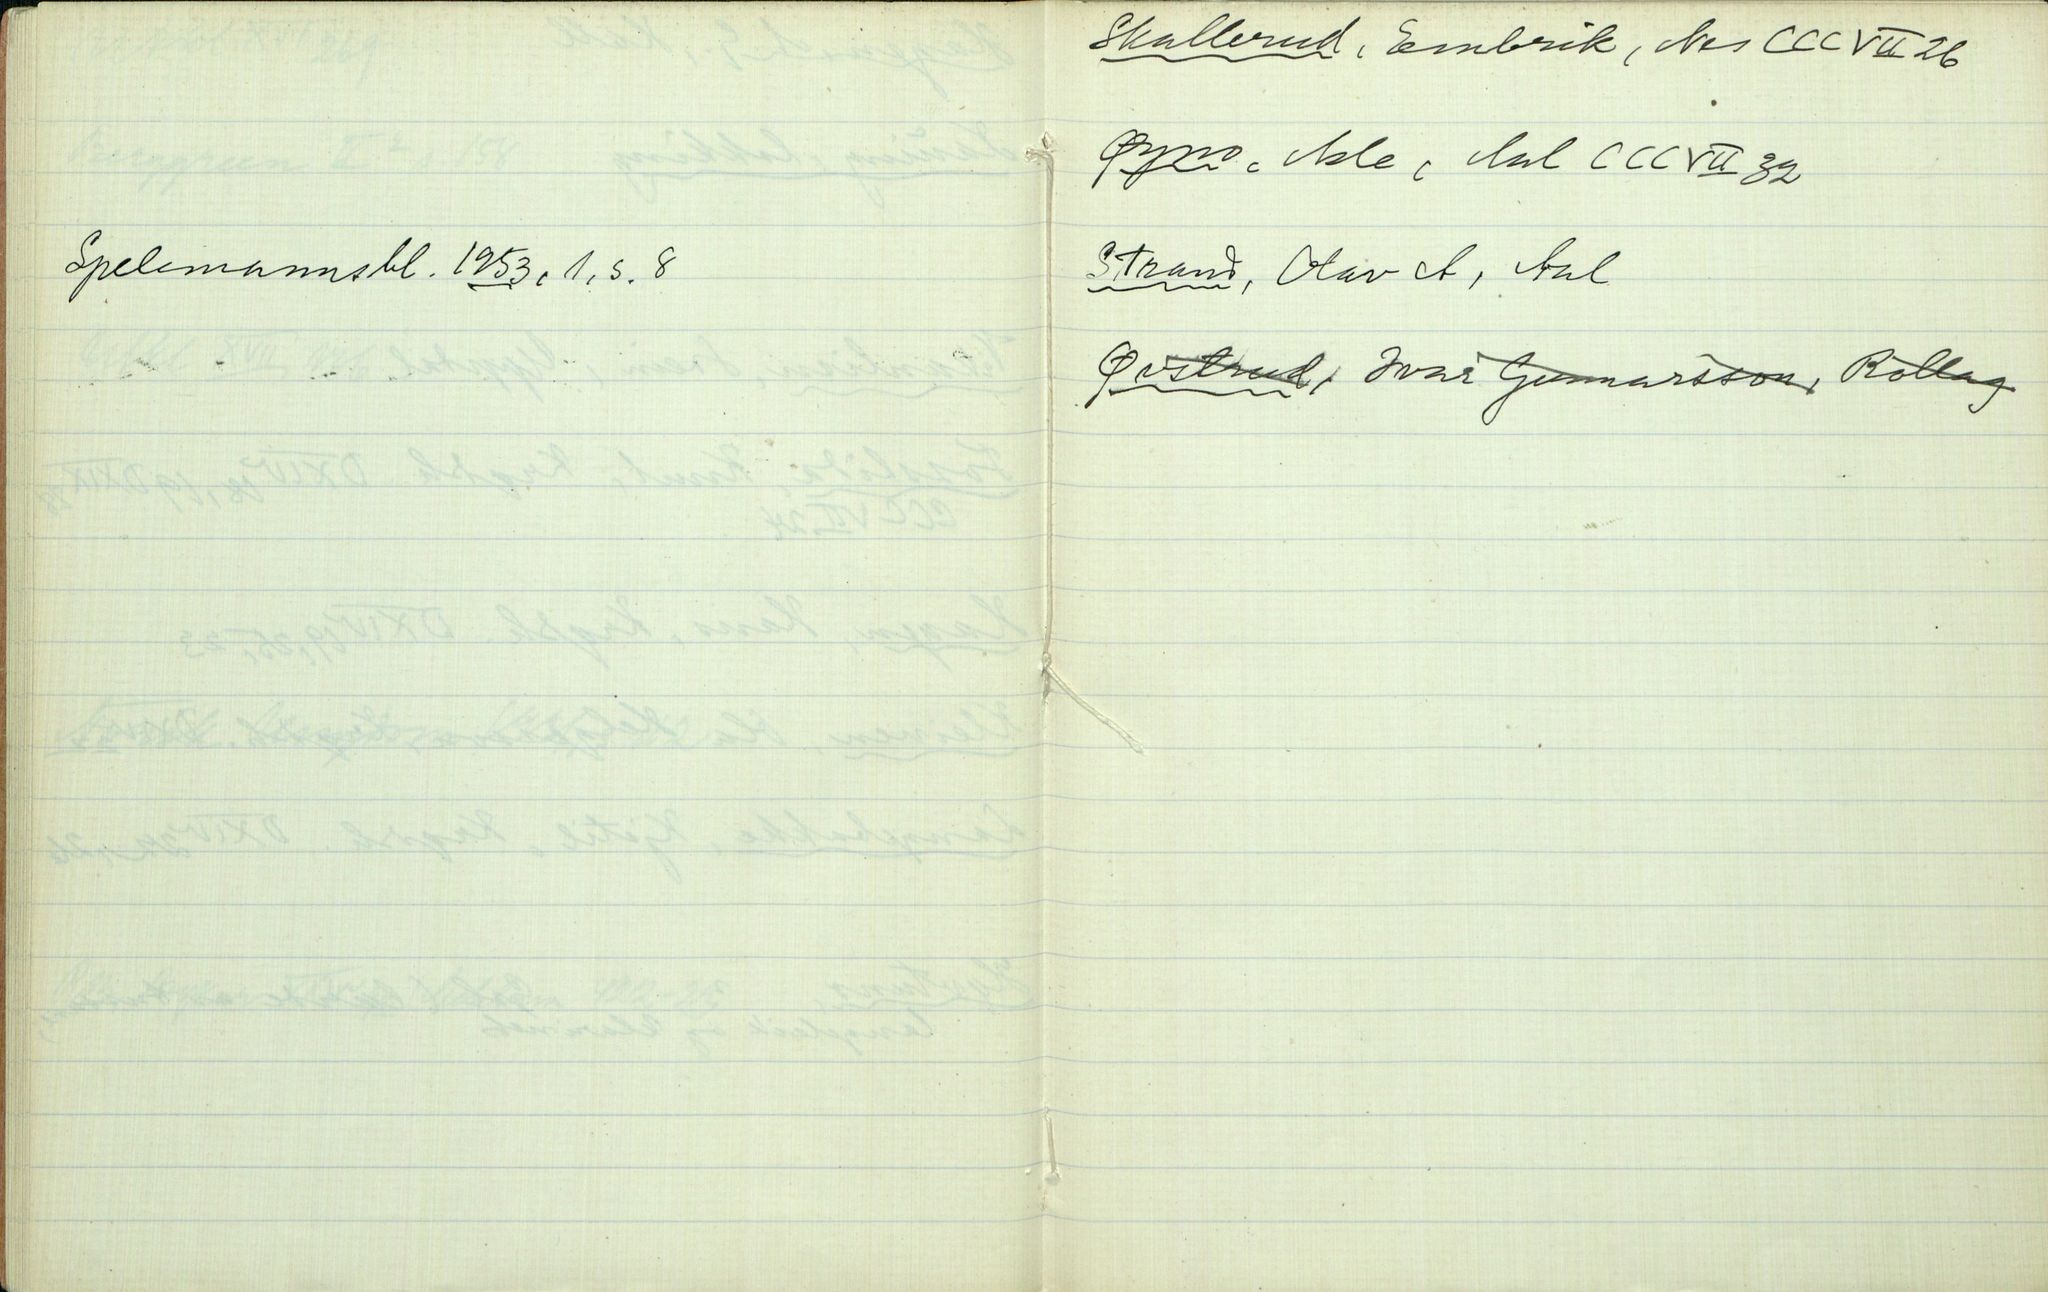 Spelemannsbl. 1953, 1, s. 8
Skallerud, Embrik, Nes CCCVII 26
Øyno, Asle, Aal CCCVII 32
Strand, Olav A, Aal
Øvstrud, Ivar Gunnarsson, Rollag